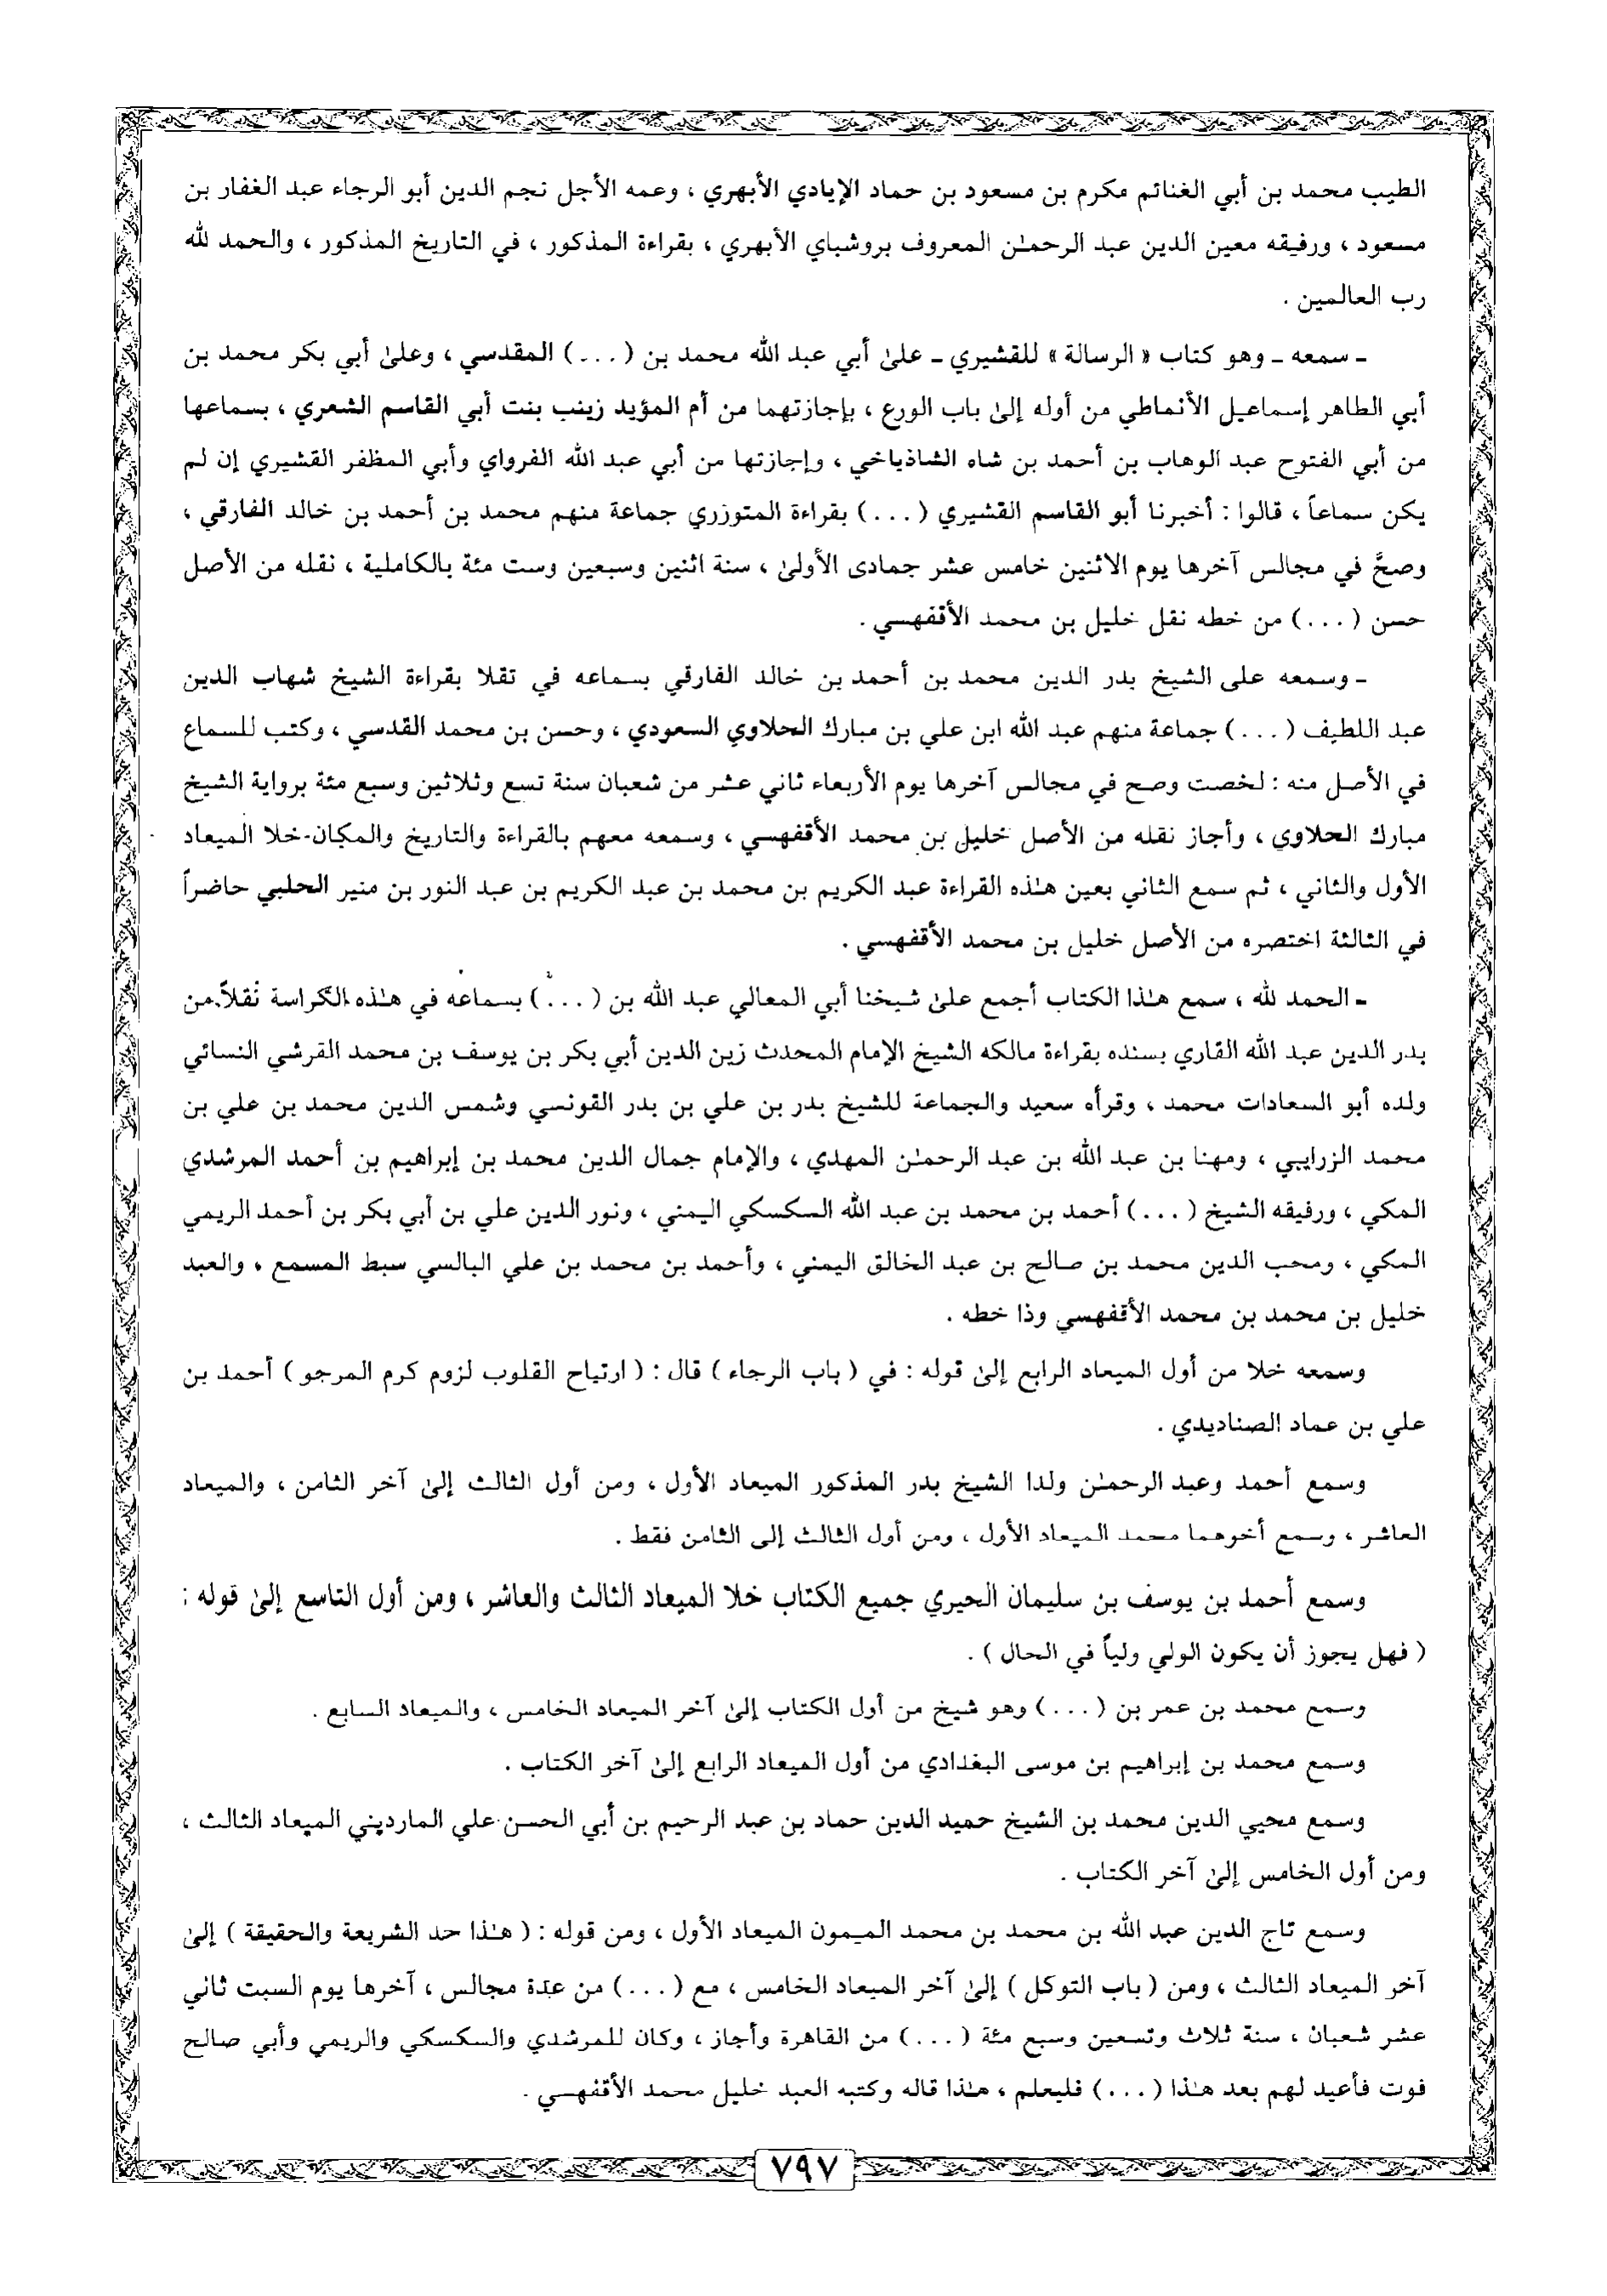 الطيب محمد بن أبي الغنائم مكرم بن مسعود بن حماد الإيادي الأبهري ، وعمه الأجل نجم الدين أبو الرجاء عبد الغفار بن
مسعود ، ورفيقه معين الدين عبد الرحمٰن المعروف بروشباي الأبهري ، بقراءة المذكور ، في التاريخ المذكور ، والحمد لله
رب العالمين .
ـ سمعه ـ وهو كتاب « الرسالة » للقشيري ـ علىٰ أبي عبد الله محمد بن ( . . . ) المقدسي ، وعلىٰ أبي بكر محمد بن
أبي الطاهر إسماعيل الأنماطي من أوله إلىٰ باب الورع ، بإجازتهما من أم المؤيد زينب بنت أبي القاسم الشعري ، بسماعها
من أبي الفتوح عبد الوهاب بن أحمد بن شاه الشاذياخي ، وإجازتها من أبي عبد الله الفرواي وأبي المظفر القشيري إن لم
يكن سماعاً ، قالوا : أخبرنا أبو القاسم القشيري ( . . . ) بقراءة المتوزري جماعة منهم محمد بن أحمد بن خالد الفارقي ،
وصحَّ في مجالس آخرها يوم الاثنين خامس عشر جمادى الأولىٰ ، سنة اثنين وسبعين وست مئة بالكاملية ، نقله من الأصل
حسن ( . . . ) من خطه نقل خليل بن محمد الأقفهسي .
ـ وسمعه على الشيخ بدر الدين محمد بن أحمد بن خالد الفارقي بسماعه في تقلا بقراءة الشيخ شهاب الدين
عبد اللطيف ( . . . ) جماعة منهم عبد الله ابن علي بن مبارك الحلاوي السعودي ، وحسن بن محمد القدسي ، وكتب للسماع
في الأصل منه : لخصت وصح في مجالس آخرها يوم الأربعاء ثاني عشر من شعبان سنة تسع وثلاثين وسبع مئة برواية الشيخ
مبارك الحلاوي ، وأجاز نقله من الأصل خليل بن محمد الأقفهسي ، وسمعه معهم بالقراءة والتاريخ والمكان خلا الميعاد
الأول والثاني ، ثم سمع الثاني بعين هـٰذه القراءة عبد الكريم بن محمد بن عبد الكريم بن عبد النور بن منير الحلبي حاضراً
في الثالثة اختصره من الأصل خليل بن محمد الأقفهسي .
ـ الحمد لله ، سمع هـٰذا الكتاب أجمع علىٰ شيخنا أبي المعالي عبد الله بن ( . . . ) بسماعه في هـٰذه الكراسة نقلاً من
بدر الدين عبد الله القاري بسنده بقراءة مالكه الشيخ الإمام المحدث زين الدين أبي بكر بن يوسف بن محمد القرشي النسائي
ولده أبو السعادات محمد ، وقرأه سعيد والجماعة للشيخ بدر بن علي بن بدر القونسي وشمس الدين محمد بن علي بن
محمد الزرايبي ، ومهنا بن عبد الله بن عبد الرحمٰن المهدي ، والإمام جمال الدين محمد بن إبراهيم بن أحمد المرشدي
المكي ، ورفيقه الشيخ ( . . . ) أحمد بن محمد بن عبد الله السكسكي اليمني ، ونور الدين علي بن أبي بكر بن أحمد الريمي
المكي ، ومحب الدين محمد بن صالح بن عبد الخالق اليمني ، وأحمد بن محمد بن علي البالسي سبط المسمع ، والعبد
خليل بن محمد بن محمد الأقفهسي وذا خطه .
وسمعه خلا من أول الميعاد الرابع إلىٰ قوله : في ( باب الرجاء ) قال : ( ارتياح القلوب لزوم كرم المرجو ) أحمد بن
علي بن عماد الصناديدي .
وسمع أحمد وعبد الرحمٰن ولدا الشيخ بدر المذكور الميعاد الأول ، ومن أول الثالث إلىٰ آخر الثامن ، والميعاد
العاشر ، وسمع أخوهما محمد الميعاد الأول ، ومن أول الثالث إلى الثامن فقط .
وسمع أحمد بن يوسف بن سليمان الحيري جميع الكتاب خلا الميعاد الثالث والعاشر ، ومن أول التاسع إلىٰ قوله :
( فهل يجوز أن يكون الولي ولياً في الحال ) .
وسمع محمد بن عمر بن ( . . . ) وهو شيخ من أول الكتاب إلىٰ آخر الميعاد الخامس ، والميعاد السابع .
وسمع محمد بن إبراهيم بن موسى البغدادي من أول الميعاد الرابع إلىٰ آخر الكتاب .
وسمع محيي الدين محمد بن الشيخ حميد الدين حماد بن عبد الرحيم بن أبي الحسن علي المارديني الميعاد الثالث ،
ومن أول الخامس إلىٰ آخر الكتاب .
وسمع تاج الدين عبد الله بن محمد بن محمد الميمون الميعاد الأول ، ومن قوله : ( هـٰذا حد الشريعة والحقيقة ) إلىٰ
آخر الميعاد الثالث ، ومن ( باب التوكل ) إلىٰ آخر الميعاد الخامس ، مع ( . . . ) من عدة مجالس ، آخرها يوم السبت ثاني
عشر شعبان ، سنة ثلاث وتسعين وسبع مئة ( . . . ) من القاهرة وأجاز ، وكان للمرشدي والسكسكي والريمي وأبي صالح
فوت فأعيد لهم بعد هـٰذا ( . . . ) فليعلم ، هـٰذا قاله وكتبه العبد خليل محمد الأقفهسي .
٧٩٧